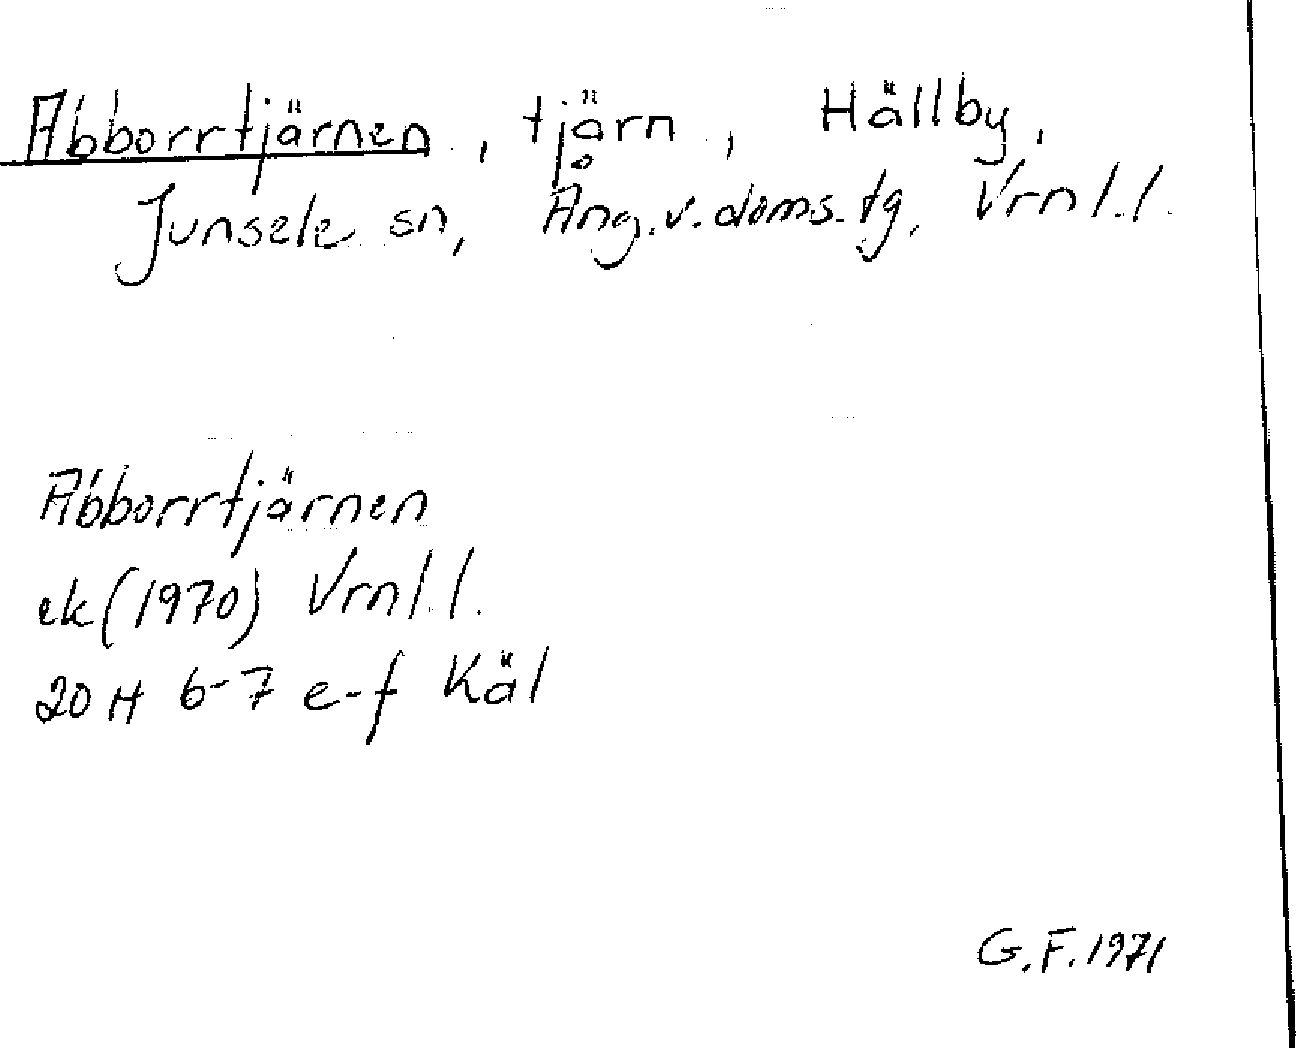 Abborrtjärnen, tjärn, Hällby,
Junsele sn, Ång.v.doms.tg, Vrnl.l.
Abborrtjärnen
ek(1970) Vrnl.l.
20 H 6-7 e-f Käl
G.F.1971